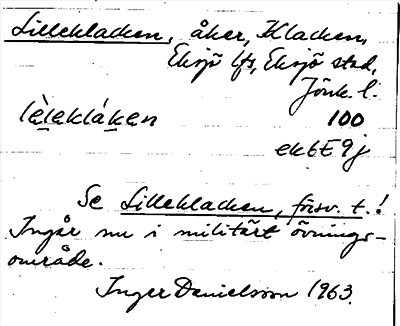 Lillekladen, åker, Kladen,
Eksjö lfs, Eksjö stad,
Jönk. l.
lèleklàken 100
ek6E9j
Se Lillekladen, försv. t.!
Ingår nu i militärt övnings-
område.
Inger Danielsson 1963.